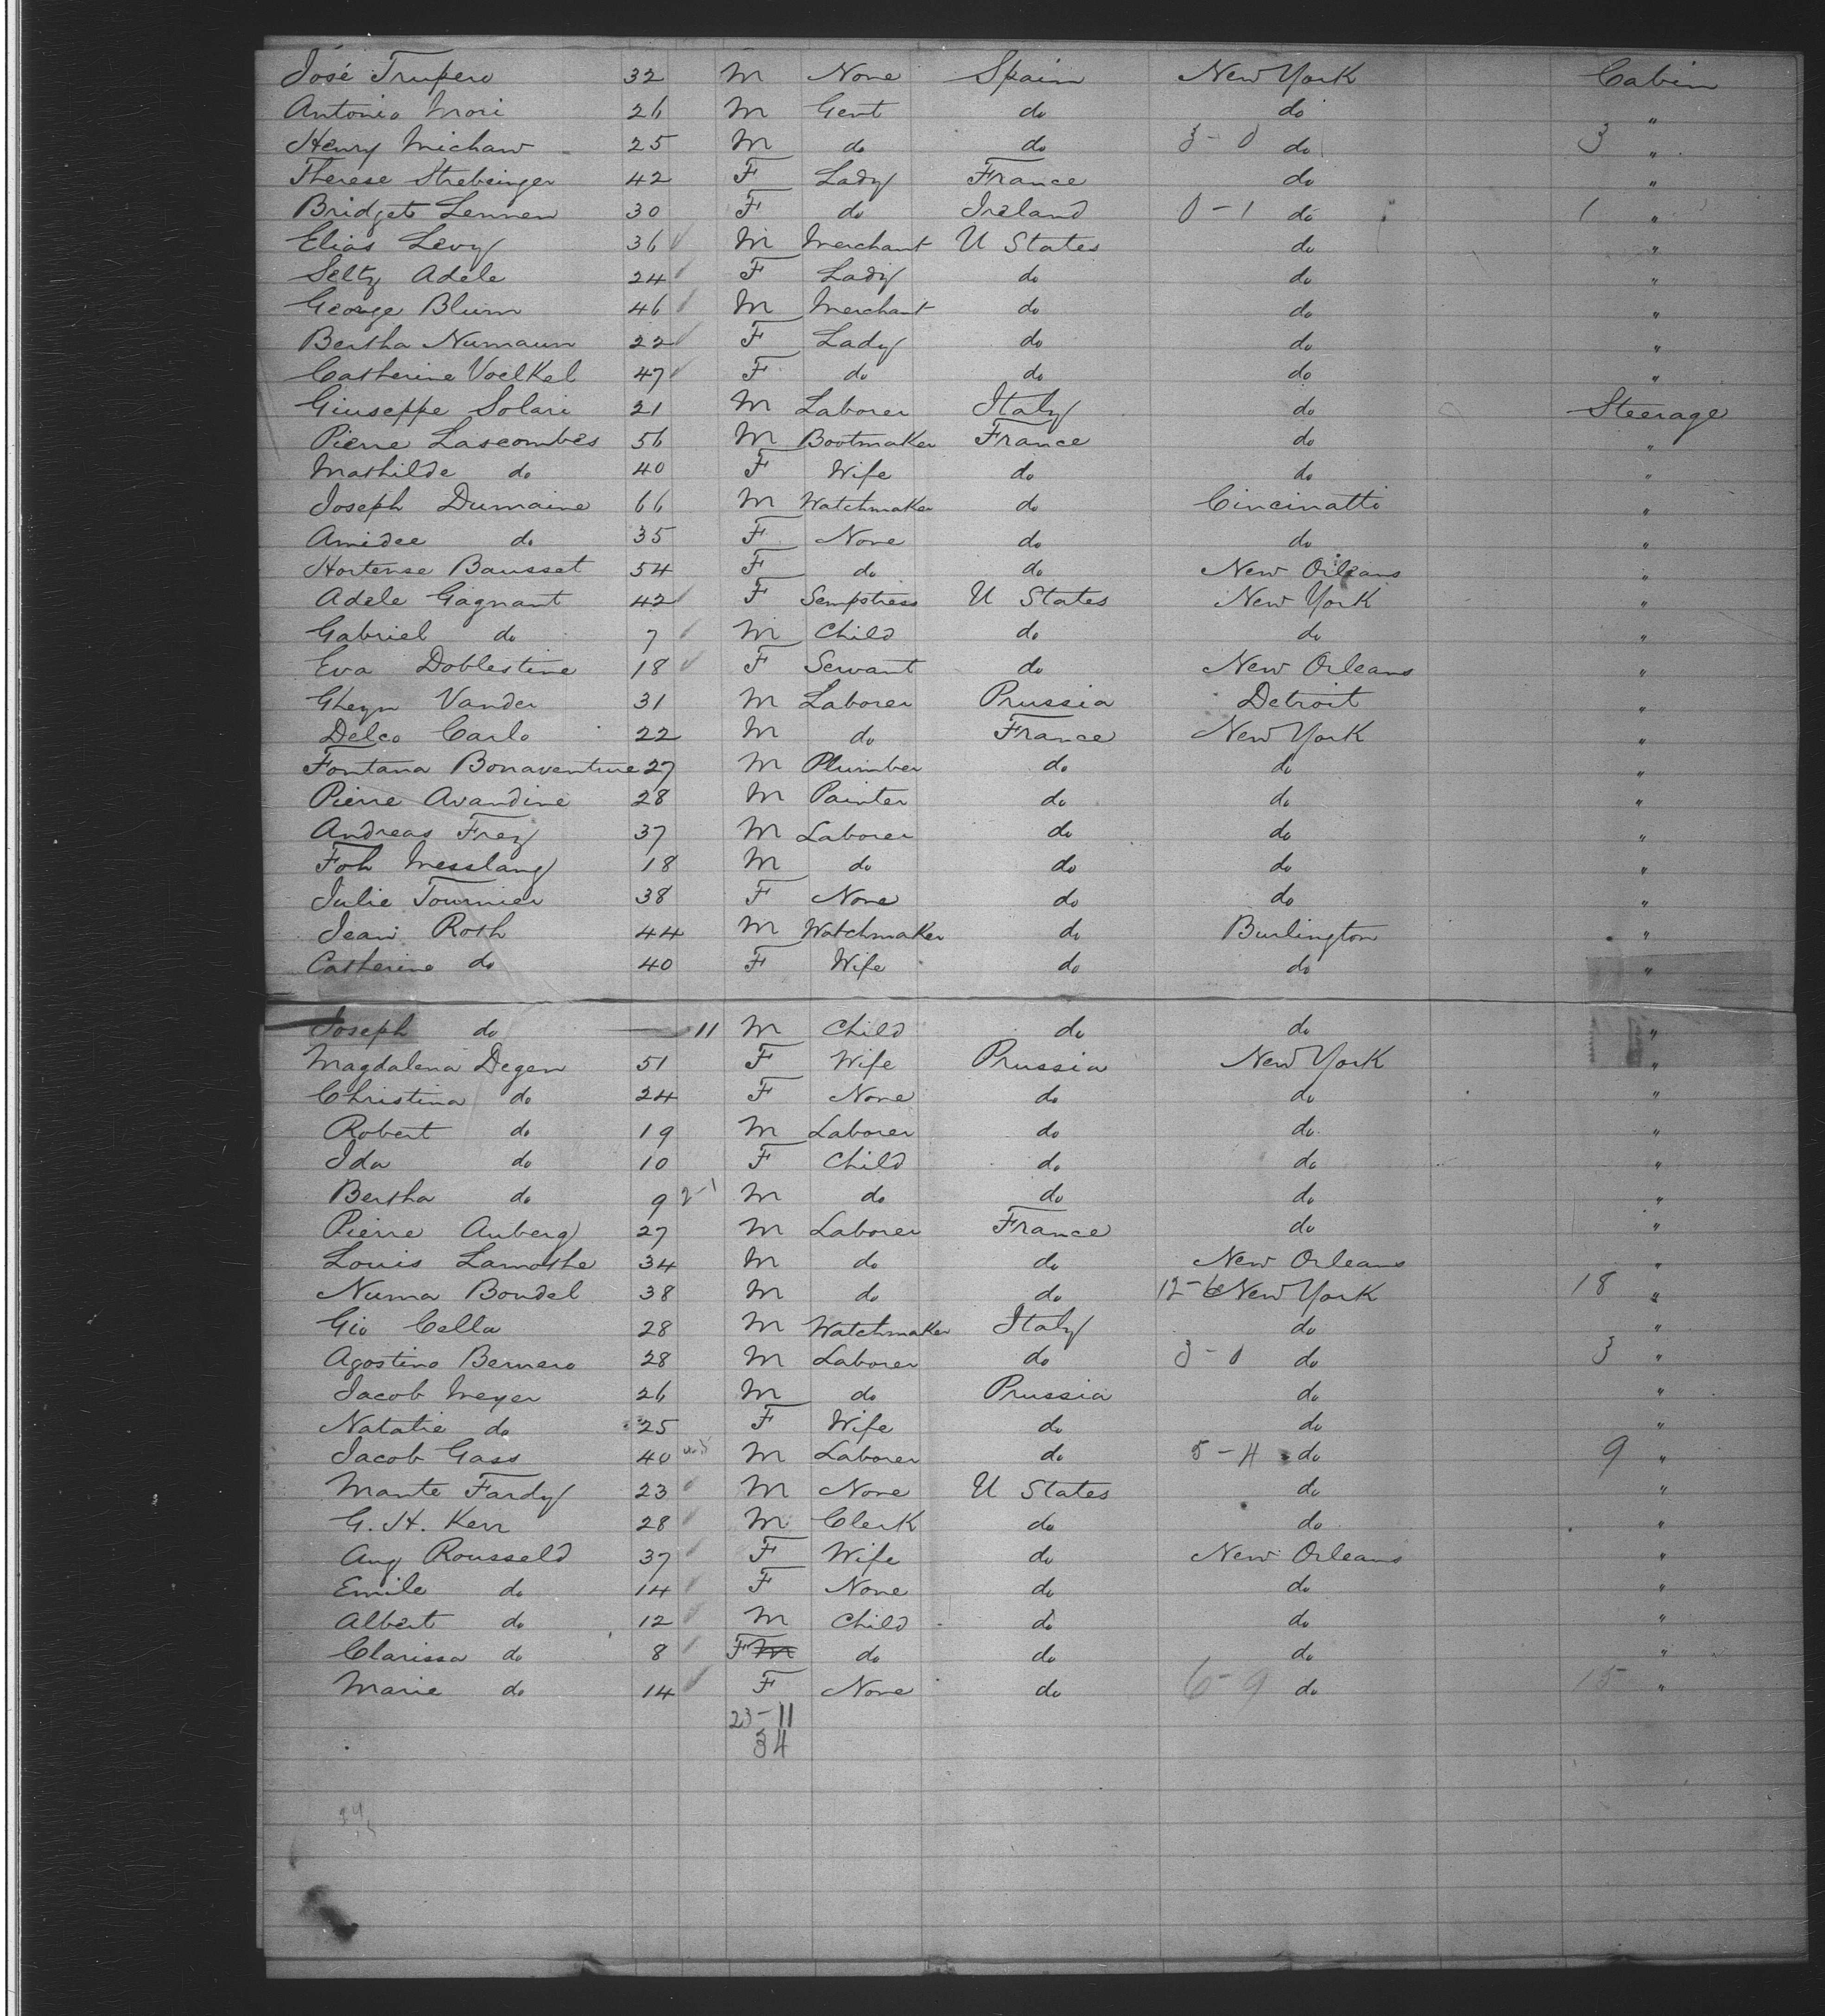 José Trupero 32 M None Spain New York Cabin
Antonio Mori 26 M Gent do do "
Henry Michaw 25 M do do 3-0 do 3 "
Therese Strebinger 42 F Lady France do "
Bridget Lennen 30 F do Ireland 0-1 do 1 "
Elias Levy 36 M Merchant U States do "
Selty Adele 24 F Lady do do "
George Blum 46 M Merchant do do "
Bertha Numaun 22 F Lady do do "
Catherine Voelkel 47 F do do do "
Giuseppe Solari 21 M Laborer Italy do Steerage
Pierre Lascombes 56 M Bootmaker France do "
Mathilde do 40 F Wife do do "
Joseph Dumaine 66 M Watchmaker do Cincinatti "
Amidee do 35 F None do do "
Hortense Bausset 54 F do do New Orleans "
Adele Gagnant 42 F Sempstress U States New York "
Gabriel do 7 M Child do do "
Eva Doblestine 18 F Servant do New Orleans "
Gheyn Vander 31 M Laborer Prussia Detroit "
Delco Carlo 22 M do France New York "
Fontana Bonaventure 27 M Plumber do do "
Pierre Avandine 28 M Painter do do "
Andreas Frey 37 M Laborer do do "
Foh Messlang 18 M do do do "
Julie Tournier 38 F None do do "
Jean Roth 44 M Watchmaker do Burlington "
Catherine do 40 F Wife do do "
Joseph do 11 M Child do do "
Magdalena Degen 51 F Wife Prussia New York "
Christina do 24 F None do do "
Robert do 19 M Laborer do do "
Ida do 10 F Child do do "
Bertha do 9 2-1 M do do do "
Pierre Auberg 27 M Laborer France do "
Louis Lamothe 34 M do do New Orleans "
Numa Boudel 38 M do do 12-6 New York 18 "
Gio Cella 28 M Watchmaker Italy do "
Agostino Bernero 28 M Laborer do 3-0 do 3 "
Jacob Meyer 26 M do Prussia do "
Natatie do 25 F Wife do do "
Jacob Gass 40 M Laborer do 5-4 do 9 "
Mante Fardy 23 M None U States do "
G. H. Kerr 28 M Clerk do do "
Aug Rousseld 37 F Wife do New Orleans "
Emile do 14 F None do do "
Albert do 12 M Child do do "
Clarissa do 8 F M do do do "
Marie do 14 F None do 6-9 do 15 "
23-11
34